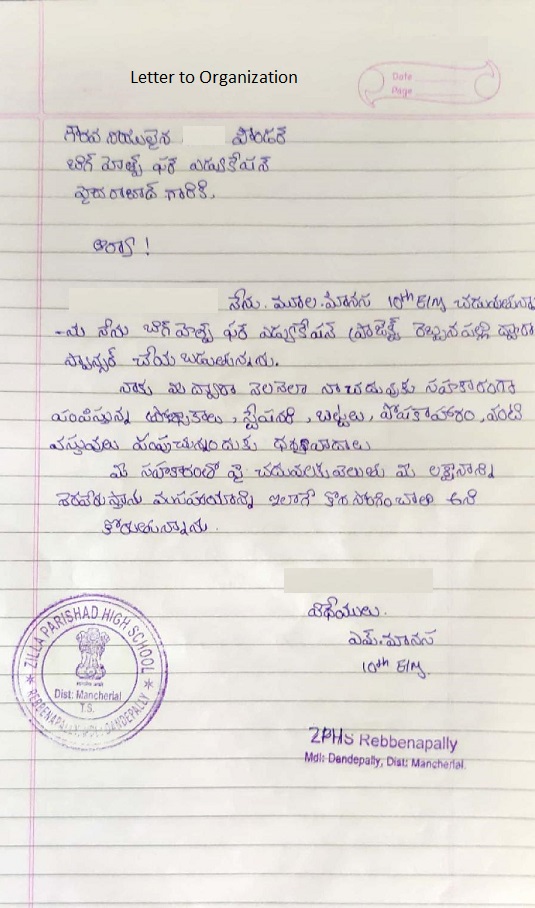 Letter to Organization
Date
Page
గౌరవ నీయులైన ఫౌండర్
బిగ్ హెల్ప్ ఫర్ ఎడ్యుకేషన్
హైదరాబాద్ గారికి,
ఆర్యా !
నేను. మూల.మానస 10th E/M చదువుతున్నా
-ను నేను బిగ్ హెల్ప్ ఫర్ ఎడ్యుకేషన్ ప్రాజెక్ట్ రెబ్బనపల్లి ద్వారా
స్పాన్సర్ చేయ బడుతున్నాను.
నాకు మీ ద్వారా నెలనెలా నా చదువుకు సహకారంగా
పంపిస్తున్న పుస్తకాలు, స్టేషనరీ, బట్టలు, పోషకాహారం, వంటి
వస్తువులు పంపుచున్నందుకు ధన్యవాదాలు
మీ సహకారంతో పై చదువులకు వెలుతు మీ లక్ష్యాన్ని
నెరవేరుస్తాను మీసహాయాన్ని ఇలాగే కొన సాగించాలి అని
కోరుతున్నాను.
విధేయులు.
ఎమ్.మానస
10th E/M.
ZILLA PARISHAD HIGH SCHOOL
Dist: Mancherial
T.S.
REBBENAPALLY, MDL: DANDEPALLY
ZPHS Rebbenapally
Mdl: Dandepally, Dist: Mancherial.